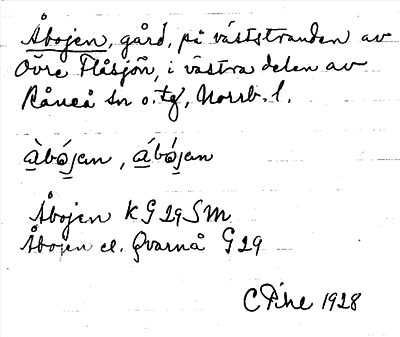 Åbojen, gård, på väststranden av
Övre Flåsjön, i västra delen av
Råneå sn o. tg, Norrb. l.
àbǿjan, ábǿjan
Åbojen K G 29 S M
Åbojen el. Qvarnå G 29
C Pihl 1928